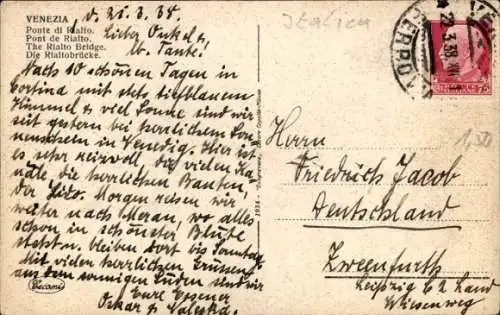 VENEZIA
Ponte di Rialto.
Pont de Rialto.
The Rialto Bridge.
Die Rialtobrücke.
d. 21.3.38.
Lieber Onkel u.
Tante!
Nach 10 schönen Tagen in
Cortina mit stets tiefblauem
Himmel u. viel Sonne sind wir
seit gestern bei herrlichem Son
nenschein in Venedig. Hier ist
es sehr reizvoll, die vielen Ka
näle die herrlichen Bauten,
der Lido. Morgen reisen wir
weiter nach Meran, wo alles
schon in schönster Blüte
steht u. bleiben dort bis Sonntag.
Mit vielen herzlichen Grüssen
aus dem sonnigen Süden sind wir
Eure Essener
Oskar u.
Italien
75
1,50
Herrn
Friedrich Jacob
Deutschland
Zweenfurth
Leipzig C 2 Land
Wiesenweg